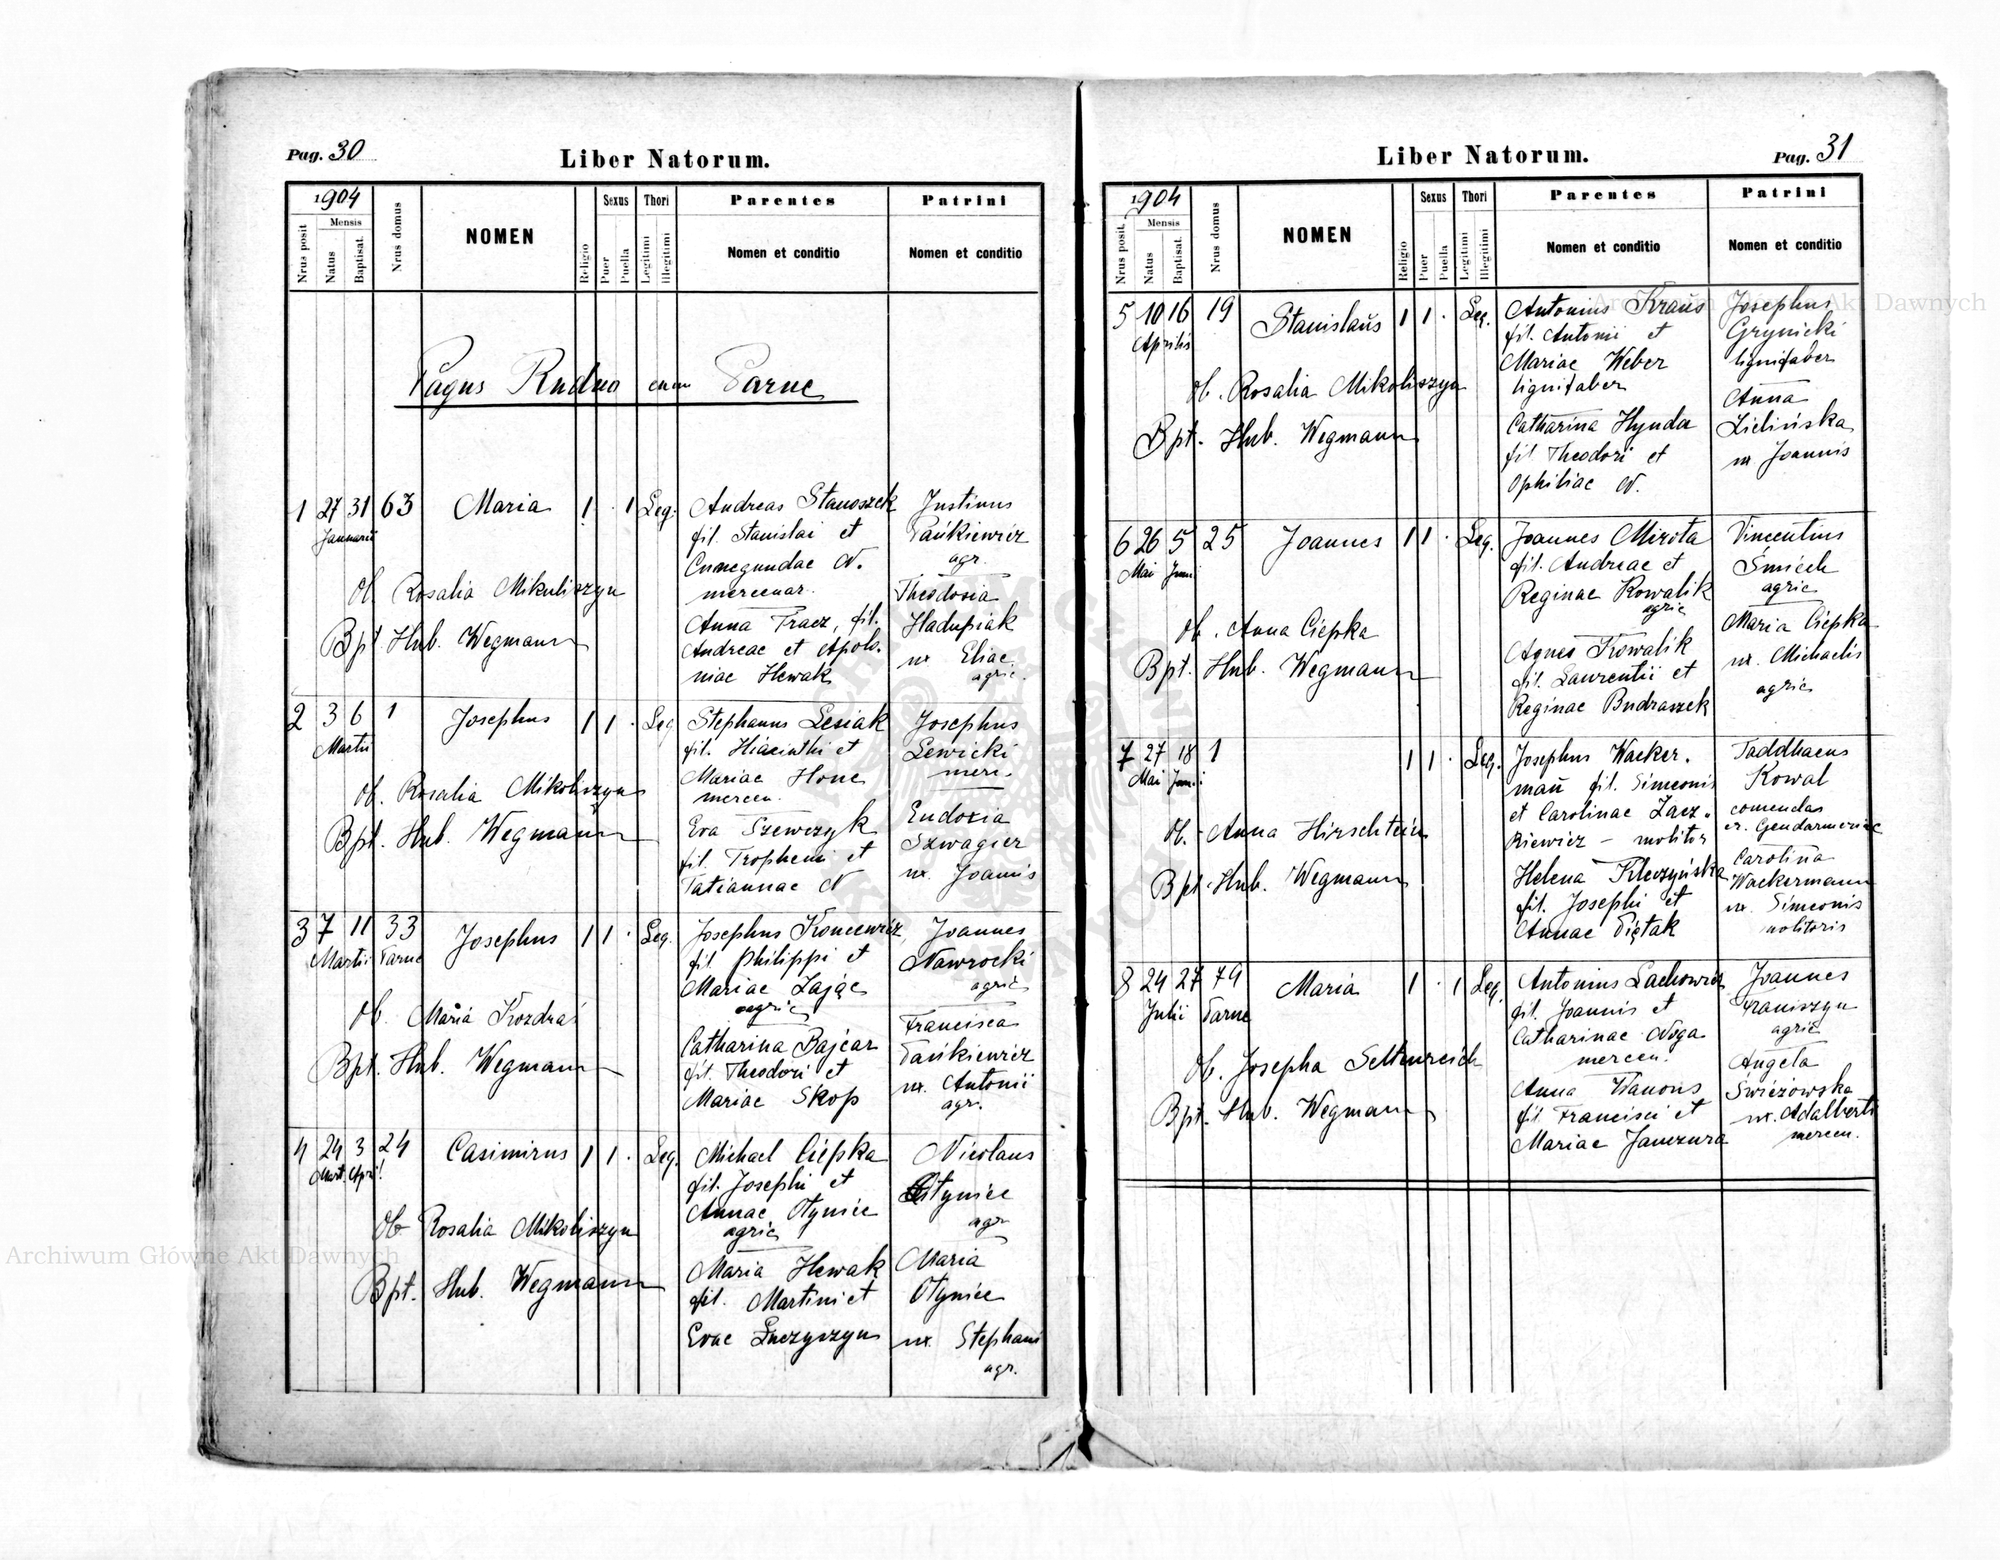 Pag. 30
Liber Natorum.
1904
Nrus posit
Mensis
Natus
Baptisat.
Nrus domus
NOMEN
Religio
Sexus
Puer
Puella
Thori
Legitimi
Illegitimi
Parentes
Nomen et conditio
Patrini
Nomen et conditio
Pagus Rudno cum Parne
1 27 31 63 Maria 1 · 1 Leg.
Januarii
Ob. Rosalia Mikuliszyn
Bpt. Hub. Wegmann
Andreas Stanoszek
fil. Stanislai et
Cunegundae N.
mercenar.
Anna Tracz, fil.
Andreae et Apolo-
niae Hewak
Justinus
Pańkiewicz
agr.
Theodosia
ux. Eliae
agric.
2 3 6 1 Josephus 1 1 · Leg
Martii
Ob. Rosalia Mikoliszyn
Bpt. Hub. Wegmann
Stephanus Lesiak
fil. Hiacinthi et
Mariae Hone
mercen.
Eva Szewczyk
fil. Trophemi et
Tatiannae N
Josephus
Lewicki
merc.
Eudosia
Szwagier
ux. Joannis
3 7 11 33 Josephus 1 1 · Leg.
Martii Parne
Ob. Maria Kozdraś
Bpt. Hub. Wegmann
Josephus Koncewicz
fil. Philippi et
Mariae Zając
agric
Catharina Bajcar
fil. Theodori et
Mariae Skop
Joannes
Nawrocki
agric
Francisca
Pańkiewicz
ux. Antonii
agr.
4 24 3 24 Casimirus 1 1 · Leg.
Mart. April
Ob Rosalia Mikoliszyn
Bpt. Hub. Wegmann
Michael Ciepka
fil. Josephi et
Annae Otyniec
agric
Maria Hewak
fil. Martini et
Evae Łuczyszyn
Nicolaus
Otyniec
agr
Maria
Otyniec
ux. Stephani
agr.
Liber Natorum.
Pag. 31
1904
Nrus posit.
Mensis
Natus
Baptisat.
Nrus domus
NOMEN
Religio
Sexus
Puer
Puella
Thori
Legitimi
Illegitimi
Parentes
Nomen et conditio
Patrini
Nomen et conditio
5 10 16 19 Stanislaus 1 1 · Leg.
Aprilis
Ob. Rosalia Mikoliszyn
Bpt. Hub. Wegmann
Antonius Kraus
fil. Antonii et
Mariae Weber
lignifaber
Catharina Hynda
fil Theodori et
Ophiliae N.
Josephus
Grynicki
lignifaber
Anna
Zielińska
ux Joannis
6 26 5 25 Joannes 1 1 · Leg.
Mai Juni
Ob. Anna Ciepka
Bpt. Hub. Wegmann
Joannes Mirota
fil. Andreae et
Reginae Kowalik
agric
Agnes Kowalik
fil. Laurentii et
Reginae Budraszek
Vincentius
Śmiech
agric
Maria Ciepka
ux. Michaelis
agric
7 27 18 1 1 1 · Leg.
Mai Juni
Ob. Anna Hirschtein
Bpt. Hub. Wegmann
Josephus Wacker-
mań fil. Simeonis
et Carolinae Zacz-
kiewicz - molitor
Helena Kleczyńska
fil. Josephi et
Annae Piętak
Taddhaeus
Kowal
comendas
er. Gendarmeriae
Carolina
Wackermann
ux. Simeonis
molitoris
8 24 27 79 Maria 1 · 1 Leg.
Julii Parne
Ob. Josepha Seltenreich
Bpt. Hub. Wegmann
Antonius Lachowicz
fil. Joannis et
Catharinae Noga
mercen.
Anna Wanons
fil Francisci et
Mariae Janczura
Joannes
agric
Angela
Świeżowska
ux. Adalberti
mercen.
Archiwum Główne Akt Dawnych
Archiwum Główne Akt Dawnych